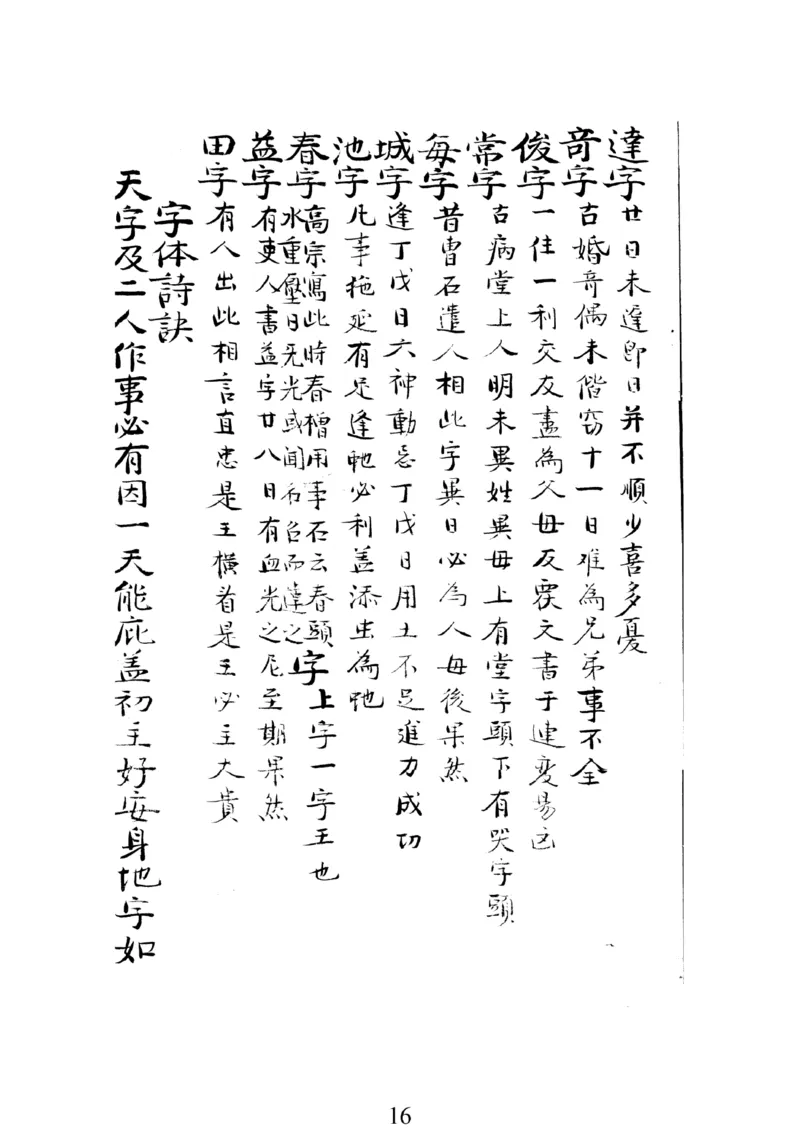 達字廿日未達即日并不順少喜多憂
奇字古婚奇偶未偕窃十一日难為兄弟事不全
俊字一住一利交友盡為父母反戾文書于連変易凶
常字古病堂上人明未異姓異母上有堂字頭下有哭字頭
每字昔曹石遣人相此字異日必為人母後果然
城字逢丁戊日六神動忌丁戊日用土不足進力成功
池字凡事拖延有足逢虵必利盖添虫為虵
春字高宗寫此時春檜用事石云春頭字上字一字王也
水重壓日无光或闻名召而達之
益字有吏人書益字廿八日有血光之厄至期果然
田字有人出此相言直忠是王橫看是王必主大貴
字体詩訣
天字及二人作事必有因一天能庇盖初主好安身地字如
16